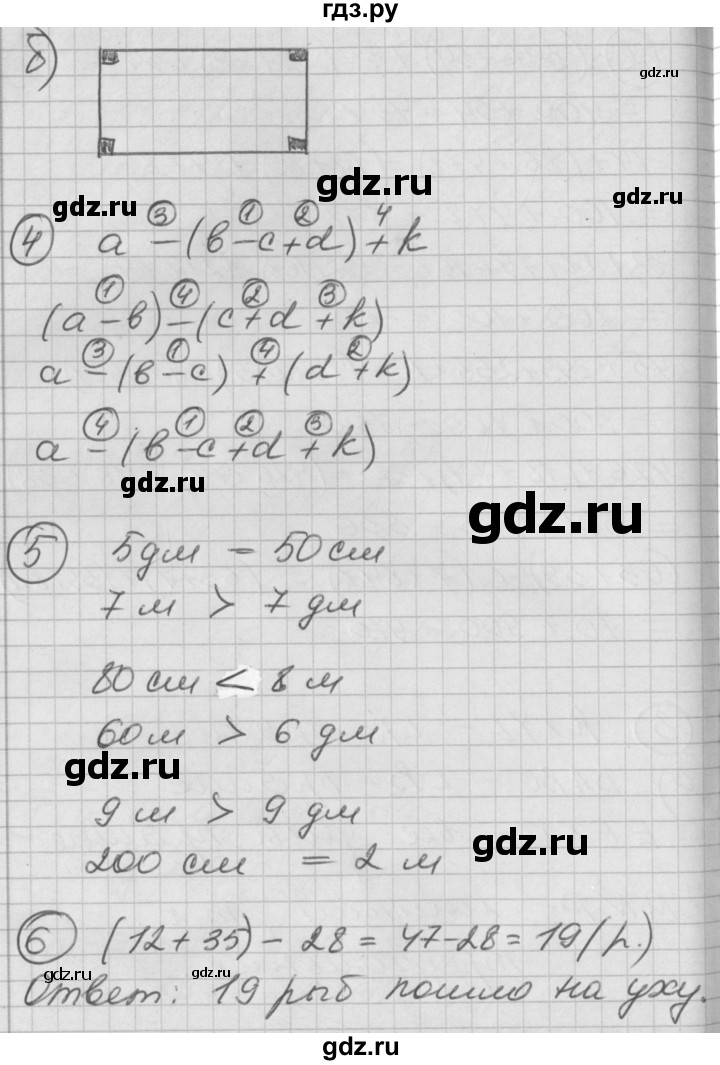 гдз.ру
б)
gdz.ru
gdz.ru
gdz.ru
gdz.ru
③ ① ② 4
④ a - (b - c + d) + k
① ④ ② ③
(a - b) - (c + d + k)
③ ① ④ ②
a - (b - c) + (d + k)
④ ① ② ③
a - (b - c + d + k)
gdz.ru
gdz.ru
⑤ 5 дм = 50 см
7 м > 7 дм
80 см < 8 м
60 м > 6 дм
gdz.ru
9 м > 9 дм
gdz.ru
200 см = 2 м
⑥ (12 + 35) - 28 = 47 - 28 = 19 (р.)
gdz.ru
gdz.ru
Ответ: 19 рыб пошло на уху.
gdz.ru